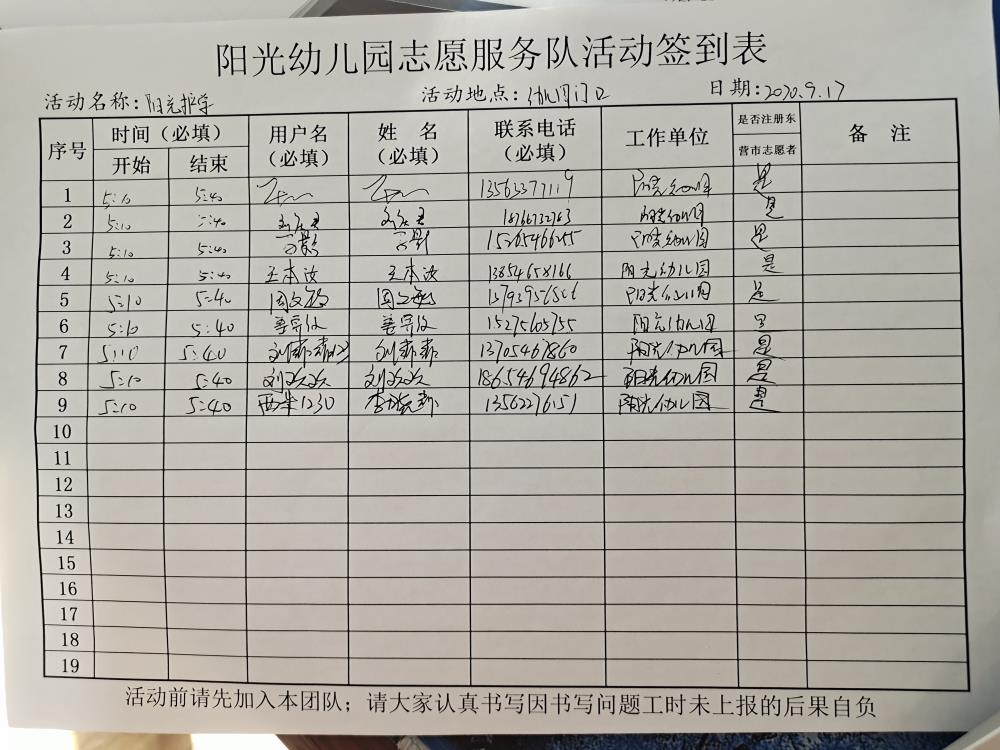 阳光幼儿园志愿服务队活动签到表
活动名称:阳光护学 活动地点:幼儿园门口 日期:2020.9.17
序号 时间（必填） 用户名（必填） 姓名（必填） 联系电话（必填） 工作单位 是否注册东营市志愿者 备注
开始 结束
1 5:10 5:40 阳光幼儿园 是
2 5:10 5:40 18766732763 阳光幼儿园 是
3 5:10 5:40 阳光幼儿园 是
4 5:10 5:40 王本汝 王本汝 13854658166 阳光幼儿园 是
5 5:10 5:40 阳光幼儿园 是
6 5:10 5:40 15275605755 阳光幼儿园 是
7 5:10 5:40 刘 13705467860 阳光幼儿园 是
8 5:10 5:40 刘 刘 18654694862 阳光幼儿园 是
9 5:10 5:40 李 13562276151 阳光幼儿园 是
10
11
12
13
14
15
16
17
18
19
活动前请先加入本团队；请大家认真书写因书写问题工时未上报的后果自负